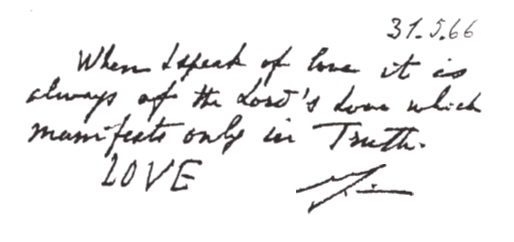 31.5.66
When I speak of love it is
always of the Lord's Love which
manifests only in Truth.
LOVE